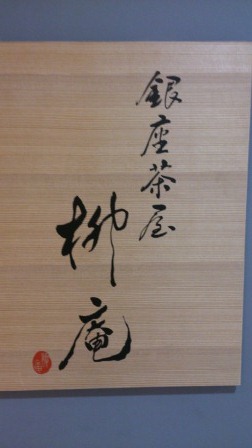 銀座茶屋
柳庵